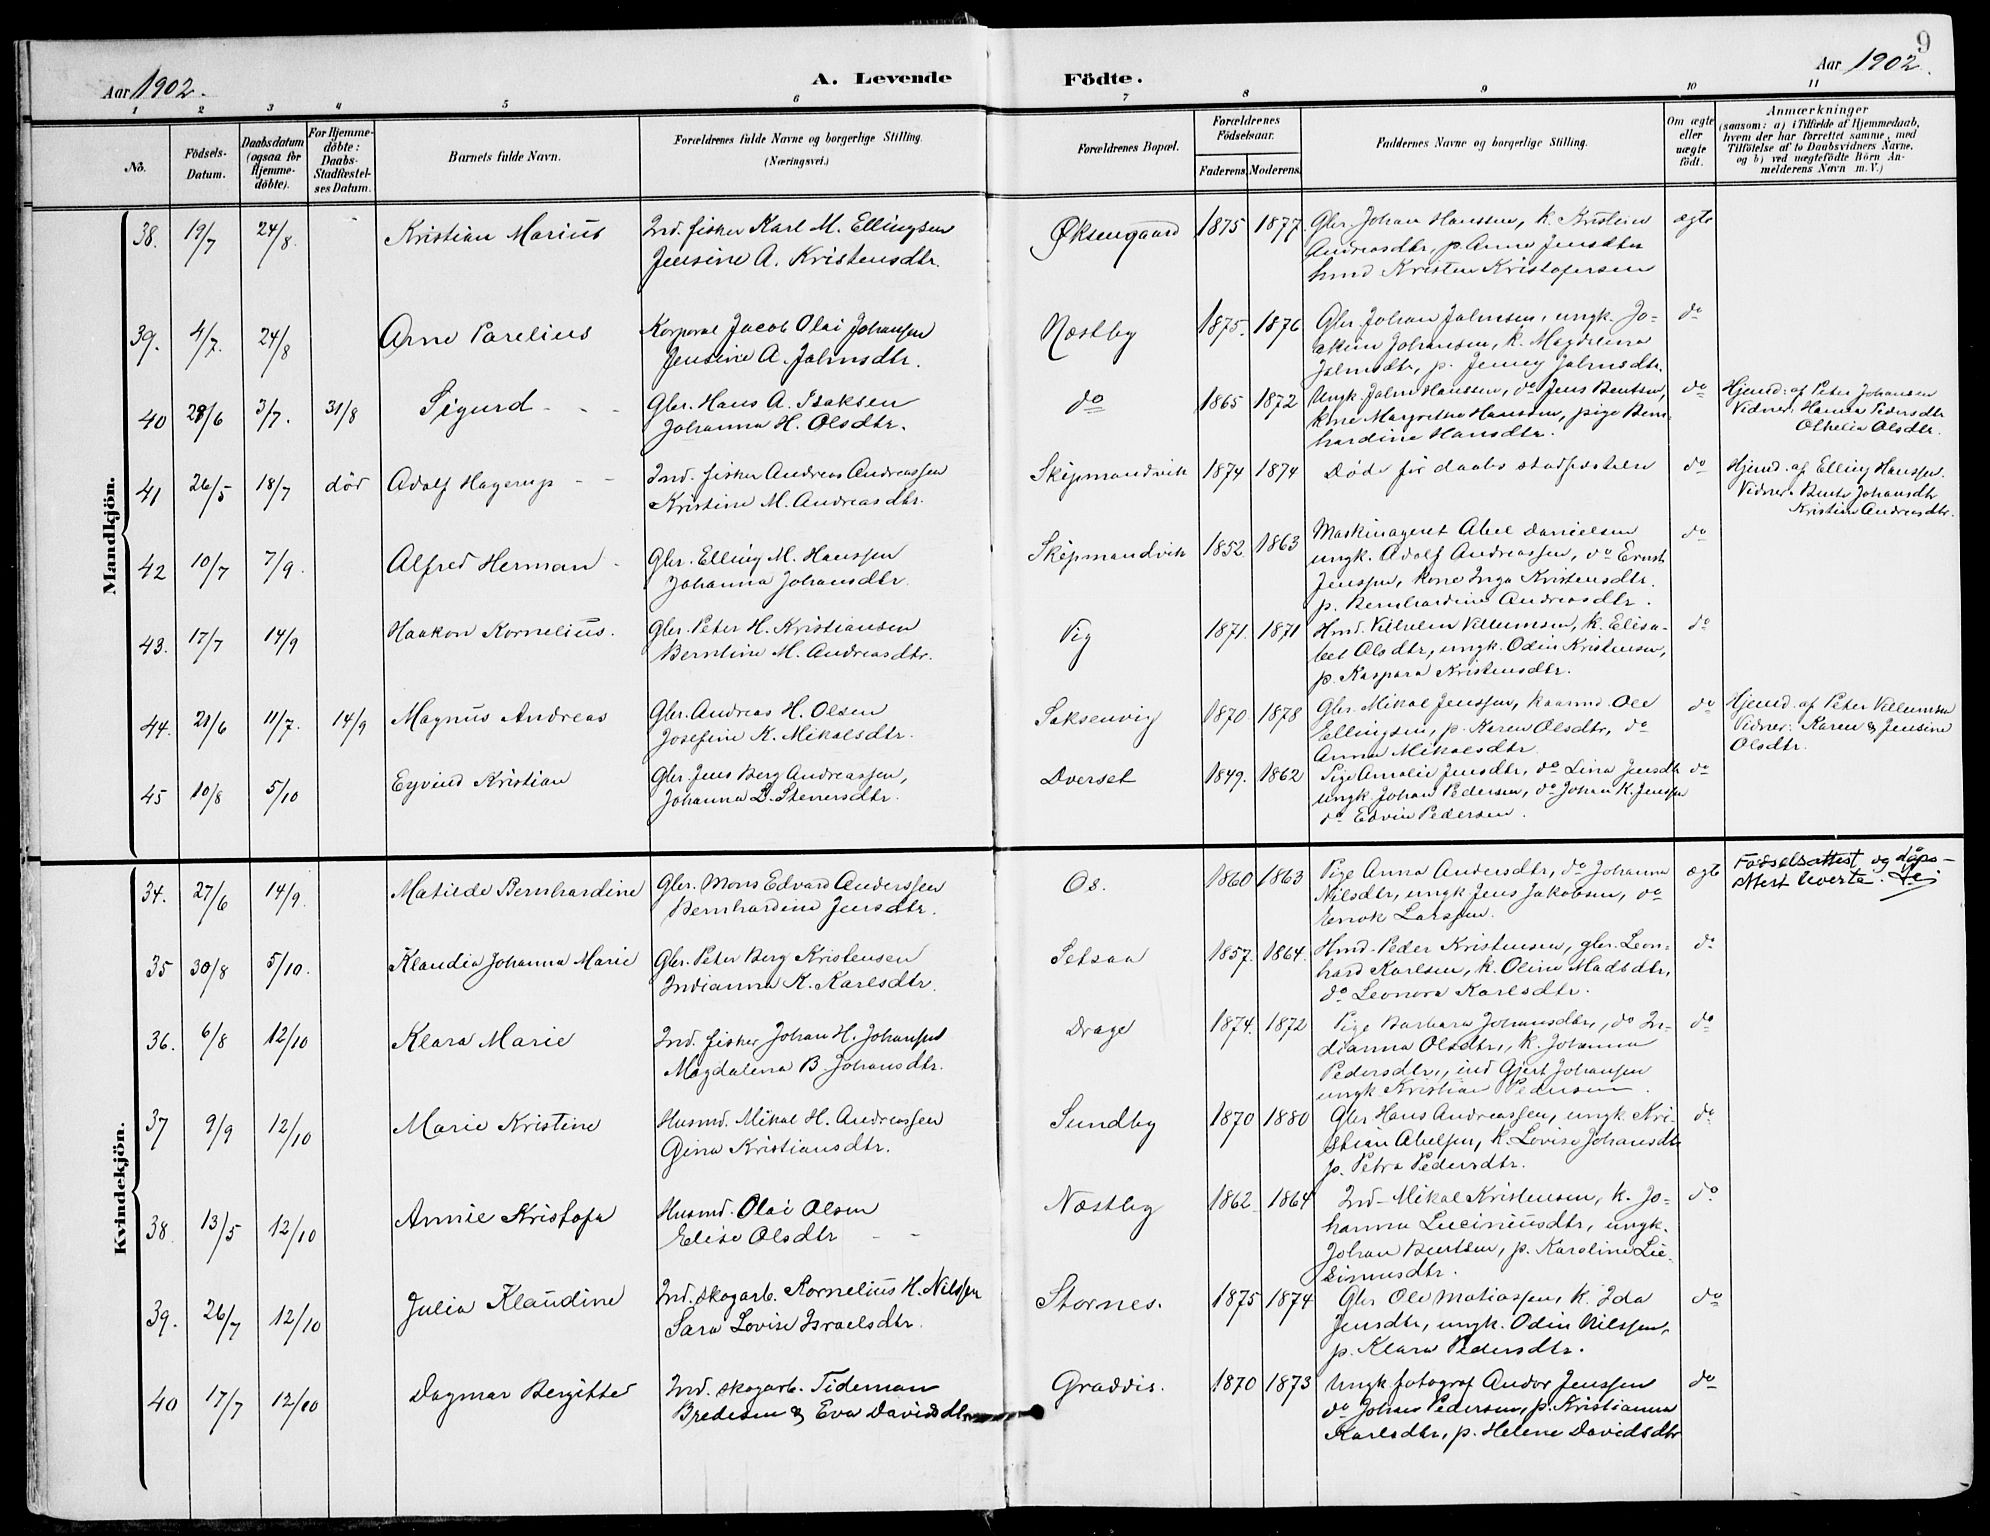 9
Aar 1902.
A. Levende Födte.
Aar 1902.
1 2 3 4 5 6 7 8 9 10 11
No.
Födsels-Datum.
Daabsdatum (ogsaa for Hjemmedöbte).
For Hjemmedöbte: Daabs-Stadfæstelses Datum.
Barnets fulde Navn.
Forældrenes fulde Navne og borgerlige Stilling. (Næringsvei.)
Forældrenes Bopæl.
Forældrenes Födselsaar.
Faderens. Moderens.
Faddernes Navne og borgerlige Stilling.
Om ægte eller uægte födt.
Anmærkninger
(saasom: a) i Tilfælde af Hjemmedaab, hvem der har forrettet samme, med Tilföielse af to Daabsvidners Navne, og b) ved uægtefödte Börn Anmelderens Navn m. V.)
Mandkjön.
38. 19/7 24/8. Kristian Marius
Ind. fisker Karl M. Ellingsen
Jensine A. Kristensdtr.
Øksengaard 1875 1877
Gbr. Johan Hanssen, k. Kristin
Andreasdtr, p. Anna Jensdtr
husmd Kristen Kristofersen
ægte
39. 4/7. 24/8 Arne Parelius
Korporal Jacob Olai Johansen
Jensine A. Jahnsdtr.
Næstby 1875. 1876
Gbr. Johan Jahnsen, ungk. Jo-
akim Johansen, k. Magdalena
Jahnsdtr, p. Jenny Jahnsdtr.
do
40 28/6 3/7. 31/8 Sigurd
Gbr. Hans A. Isaksen
Johanna H. Olsdtr.
do 1865 1872
Ungk. Jahn Hanssen, do Jens Bentsen,
kone Margrethe Hansen, pige Bern-
hardine Hansdtr.
do
Hjemd. af Peter Johansen
Vidner: Hanna Pedersdtr
Othelia Olsdtr.
41 26/5 18/7 död Adolf Hagerup
Ind. fisker Andreas Andreassen
Kristine M. Andreasdtr.
Skipmandvik 1874 1874
Døde för daabs stadfæstelse
do
Hjemd. af Elling Hanssen.
Vidner: Berit Johansdtr
Kristine Andreasdtr.
42 10/7 7/9. Alfred Herman
Gbr. Elling M. Hanssen
Johanna Johansdtr.
Skipmandvik 1852 1863
Maskinagent Abel Danielsen
ungk. Adolf Andreassen, do Ernst
Jenssen, kone Inga Kristensdtr.
p. Bernhardine Andreasdtr.
do
43. 17/7 14/9 Haakon Kornelius.
Gbr. Peter H. Kristiansen
Berntine M. Andreasdtr.
Vig 1871. 1871
Hmd. Vilhelm Villumsen, k. Elisa-
bet Olsdtr, ungk. Odin Kristensen,
p. Kaspara Kristensdtr.
do
44. 21/6 11/7. 14/9 Magnus Andreas
Gbr. Andreas H. Olsen
Josefine K. Mikalsdtr.
Saksenvig 1870 1878
Gbr. Mikal Jenssen, kaarmd Ole
Ellingsen, p. Karen Olsdtr, do
Anna Mikalsdtr.
do
Hjemd. af Peter Villumsen
Vidner: Karen & Jensine
Olsdtr.
45 10/8 5/10 Eyvind Kristian
Gbr. Jens Berg Andreassen,
Johanna L. Stenersdtr.
Dverset 1849. 1862
Pige Amalie Jensdtr, do Lina Jensdtr
ungk. Johan Pedersen, do Johan K. Jenssen
do Edvin Pedersen.
do
Kvindekjön.
34. 27/6 14/9. Matilde Bernhardine
Gbr. Mons Edvard Anderssen
Bernhardine Jensdtr.
Os. 1860 1863
Pige Anna Andersdtr, do Johanna
Nilsdtr, ungk Jens Jakobsen, do
Enok Larssen.
ægte
Fødselsattest og dåps-
attest leverte.
35 30/8 5/10. Klaudia Johanna Marie
Gbr. Peter Berg Kristensen
Indianna K. Karlsdtr.
Setsaa 1857. 1864.
Hmd. Peder Kristensen, gbr. Leon-
hard Karlsen, k. Oline Madsdtr,
do Leonora Karlsdtr.
do
36. 6/8 12/10 Klara Marie
Ind. fisker Johan H. Johansen
Magdalena B. Johansdtr.
Drage 1874. 1872
Pige Barbara Johansdtr, do In-
dianna Olsdtr, k. Johanna
Pedersdtr, ind Gjert Johansen
ungk Kristian Pedersen.
do
37 9/9 12/10 Marie Kristine
Husmd. Mikal H. Andreassen
Gina Kristiansdtr.
Sundby 1870 1880
Gbr Hans Andreassen, ungk Kri-
stian Abelsen, k. Lovise Johansdtr
p. Petra Pedersdtr.
do
38 13/5 12/10 Annie Kristofa
Husmd. Olai Olsen
Elise Olsdtr
Næstby 1862 1864
Ind- Mikal Kristensen, k. Jo-
hanna Luciniusdtr, ungk.
Johan Bentsen, p. Karoline Lu-
cinusdtr.
do
39. 26/7 12/10 Julia Klaudine
Ind. skogarb. Kornelius H. Nilssen
Sara Lovise Israelsdtr.
Stornes. 1875 1874
Gbr Ole Matiassen, k. Ida
Jensdtr, ungk. Odin Nilssen,
p. Klara Pedersdtr.
do
40 17/7 12/10 Dagmar Bergitte
Ind. skogarb. Tideman
Bredesen & Eva Davidsdtr
Graddis. 1870 1873
Ungk fotograf Andor Jenssen
do Johan Pedersen, p. Kristianna
Karlsdtr, p. Helene Davidsdtr
do